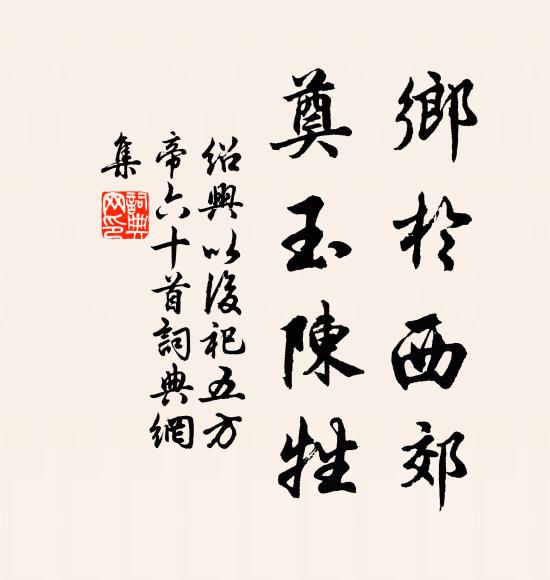 鄉於西郊
奠玉陳牲
紹興以後祀五方
帝六十首詞典網
集
詞典
网印